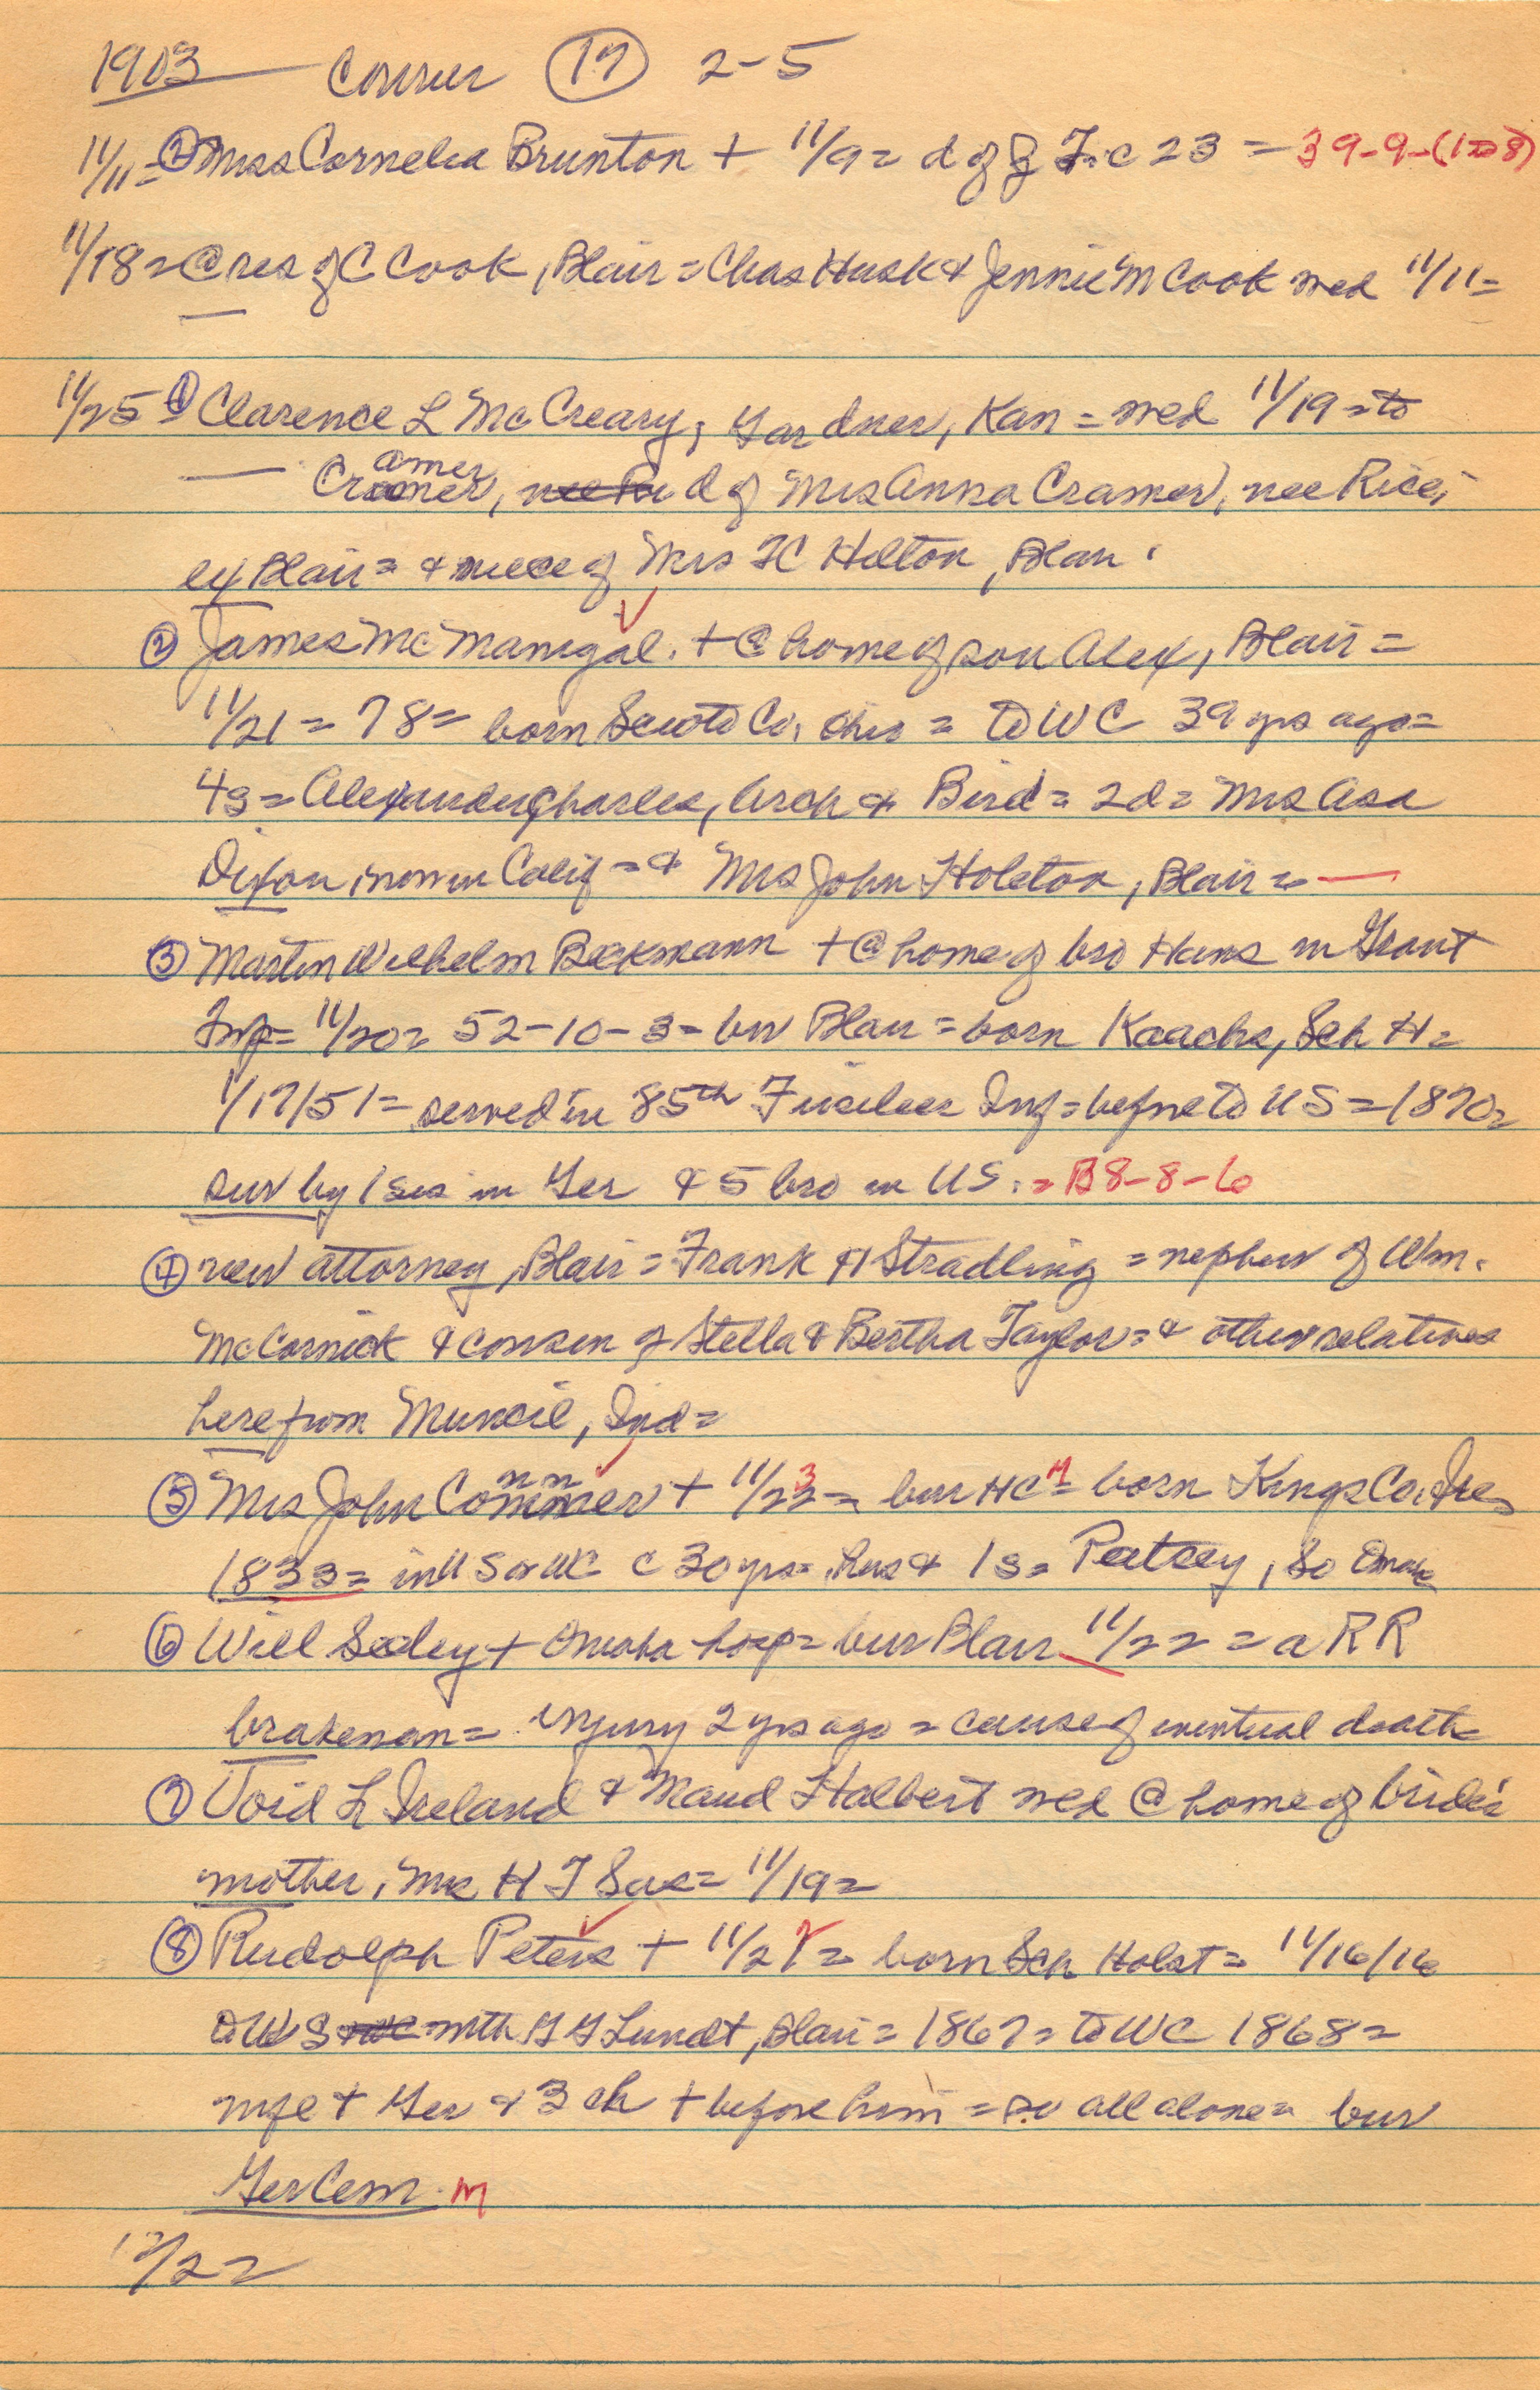 1903 Courier (17) 2-5
11/11= ② Miss Cornelia Brunton + 11/9= d of J F= c 23 = 39-9-(1208)
11/18= @ res of C Cook, Blair = Chas Husk & Jennie M Cook wed 11/11=
11/25= ① Clarence L McCreary, Gardner, Kan = wed 11/19= to
— Cramer, d of Mrs Anna Cramer, nee Rice,
ex Blair= & niece of Mrs F C Hilton, Blair.
② James McManigal. + @ home of son Alex, Blair=
11/21= 78= born Scioto Co, Ohio = to WC 39 yrs ago=
4s= Alexander, Charles, Arch & Bird= 2d= Mrs Asa
Dixon, now in Calif= & Mrs John Holston, Blair= —
③ Martin Wilhelm Beckmann + @ home of bro Hans in Grant
Twp= 11/20= 52-10-3= bur Blair= born Kaacks, Sch H=
1/17/51= served in 85th Fusileer Inf= before to US=1870=
sur by 1 sis in Ger & 5 bro in US.= B8-8-6
④ new attorney, Blair= Frank H Stradling = nephew of Wm.
McCormick & cousin of Stella & Bertha Taylor= & other relatives
here from Muncie, Ind=
⑤ Mrs John Conner + 11/23= bur HC M= born Kings Co, Ire,
1833= in US & WC c 30 yrs= hus & 1s= Patsey, So Omah
⑥ Will Seeley + Omaha hosp= bur Blair 11/22= a RR
brakeman= injury 2 yrs ago = cause of eventual death=
⑦ Void L Ireland & Maud Halbert wed @ home of bride's
mother, Mrs H T Sas= 11/19=
⑧ Rudolph Peters + 11/22= born Sch Holst= 11/16/16
to US with G G Lundt, Blair= 1867= to WC 1868=
wife + Ger & 3 ch + before him= so all alone= bur
Ger Cem. M
12/22